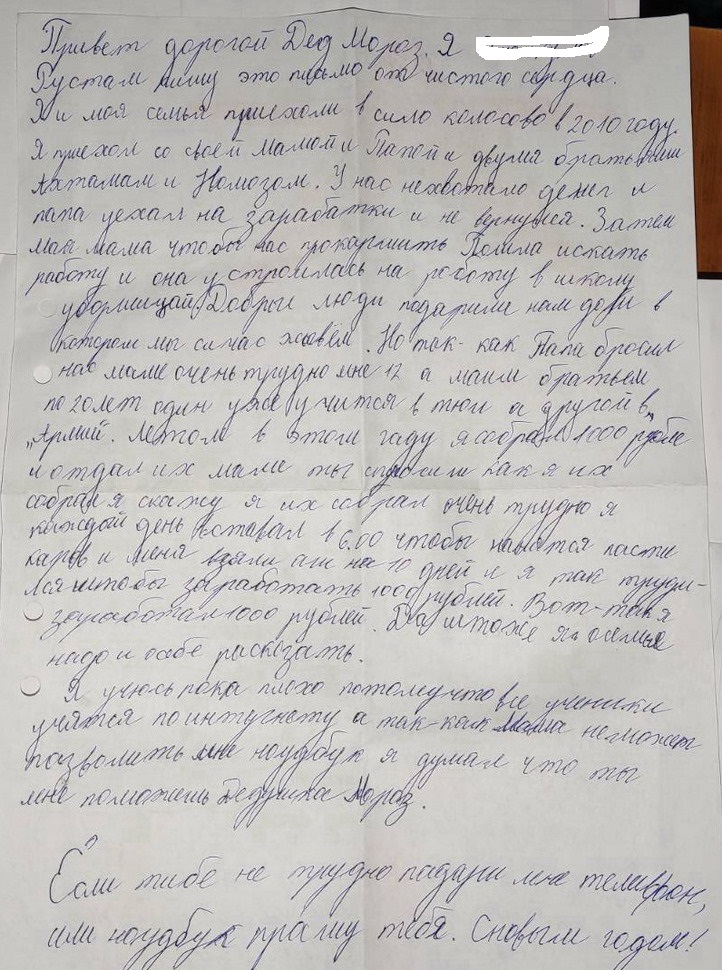 Привет дорогой Дед Мороз. Я
Рустам пишу это письмо от чистого сердца.
Я и моя семья приехали в сило колосово в 2010 году.
Я приехол со своей мамой и Папой и двумя братьями
Ахтамам и Номозом. У нас нехвотало денег и
папа уехал на зарабатки и не вернулся. Затем
май мама чтобы нас прокармить Пошла искать
работу и она устроилась на роботу в школу
уборщицай. Добрыи люди подарили нам дом в
котером мы сичас живём. Но так-как Папа бросил
нас маме очень трудно мне 12 а маим братьем
по 20 лет один уже учится в тюи а другой в
"Армий. Летом в этом гаду я собрал 1000 рубле
и отдал их маме ты спросиш как я их
собрал я скажу я их собрал очень трудно я
каждый день вставал в 6.00 чтобы пасти
каров и меня взяли аш на 10 дней и я так труди-
лся штобы заработать 1000 рублей. Вот-так я
заработал 1000 рублей. Да штоже я о семье
надо и о себе расказать.
Я учюсь пока плохо потомучто все ученики
учятся по интугнету а так-как мама неможет
пазволить мне ноудбук я думал что ты
мне поможешь Дедушка Мороз.
Если тибе не трудно падари мне телифон,
или ноудбук прашу тебя. Сновым годом!